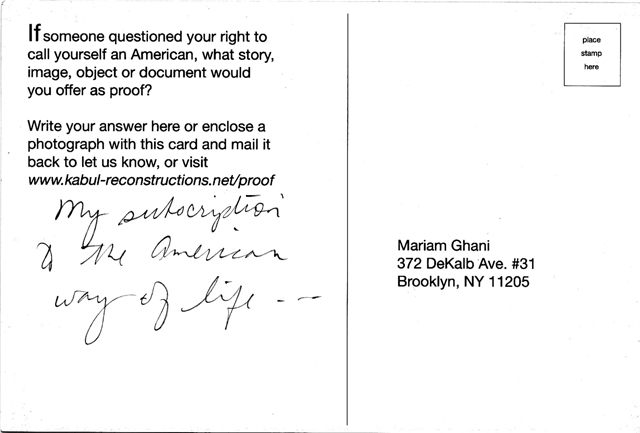 If someone questioned your right to
call yourself an American, what story,
image, object or document would
you offer as proof?
Write your answer here or enclose a
photograph with this card and mail it
back to let us know, or visit
www.kabul-reconstructions.net/proof
My subscription
to the American
way of life - --
place
stamp
here
Mariam Ghani
372 DeKalb Ave. #31
Brooklyn, NY 11205